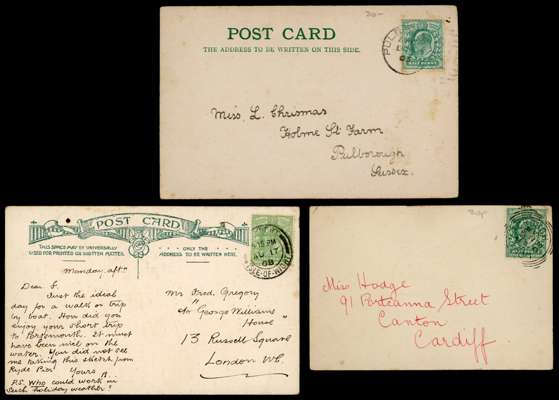 20-
POST CARD
THE ADDRESS TO BE WRITTEN ON THIS SIDE.
HALF PENNY
Miss. L. Chrismas
Holme St Farm
Pulborough
Sussex.
POST CARD
THIS SPACE MAY BE UNIVERSALLY
USED FOR PRINTED OR WRITTEN MATTER.
ONLY THE
ADDRESS TO BE WRITTEN HERE.
Monday aftn
Dear F.
Just the ideal
day for a walk or trip
by boat. How did you
enjoy your short trip
to Portsmouth. It must
have been nice on the
water. You did not see
me taking this sketch from
Ryde Pier! Yours
P.S. Who could work in
such holiday weather!
PM
AU 17
08
ISLE-OF-WIGHT
Mr Fred. Gregory
"
George Williams
House "
13 Russell Square
London WC.
Miss Hodge
91 Portcanna Street
Canton
Cardiff